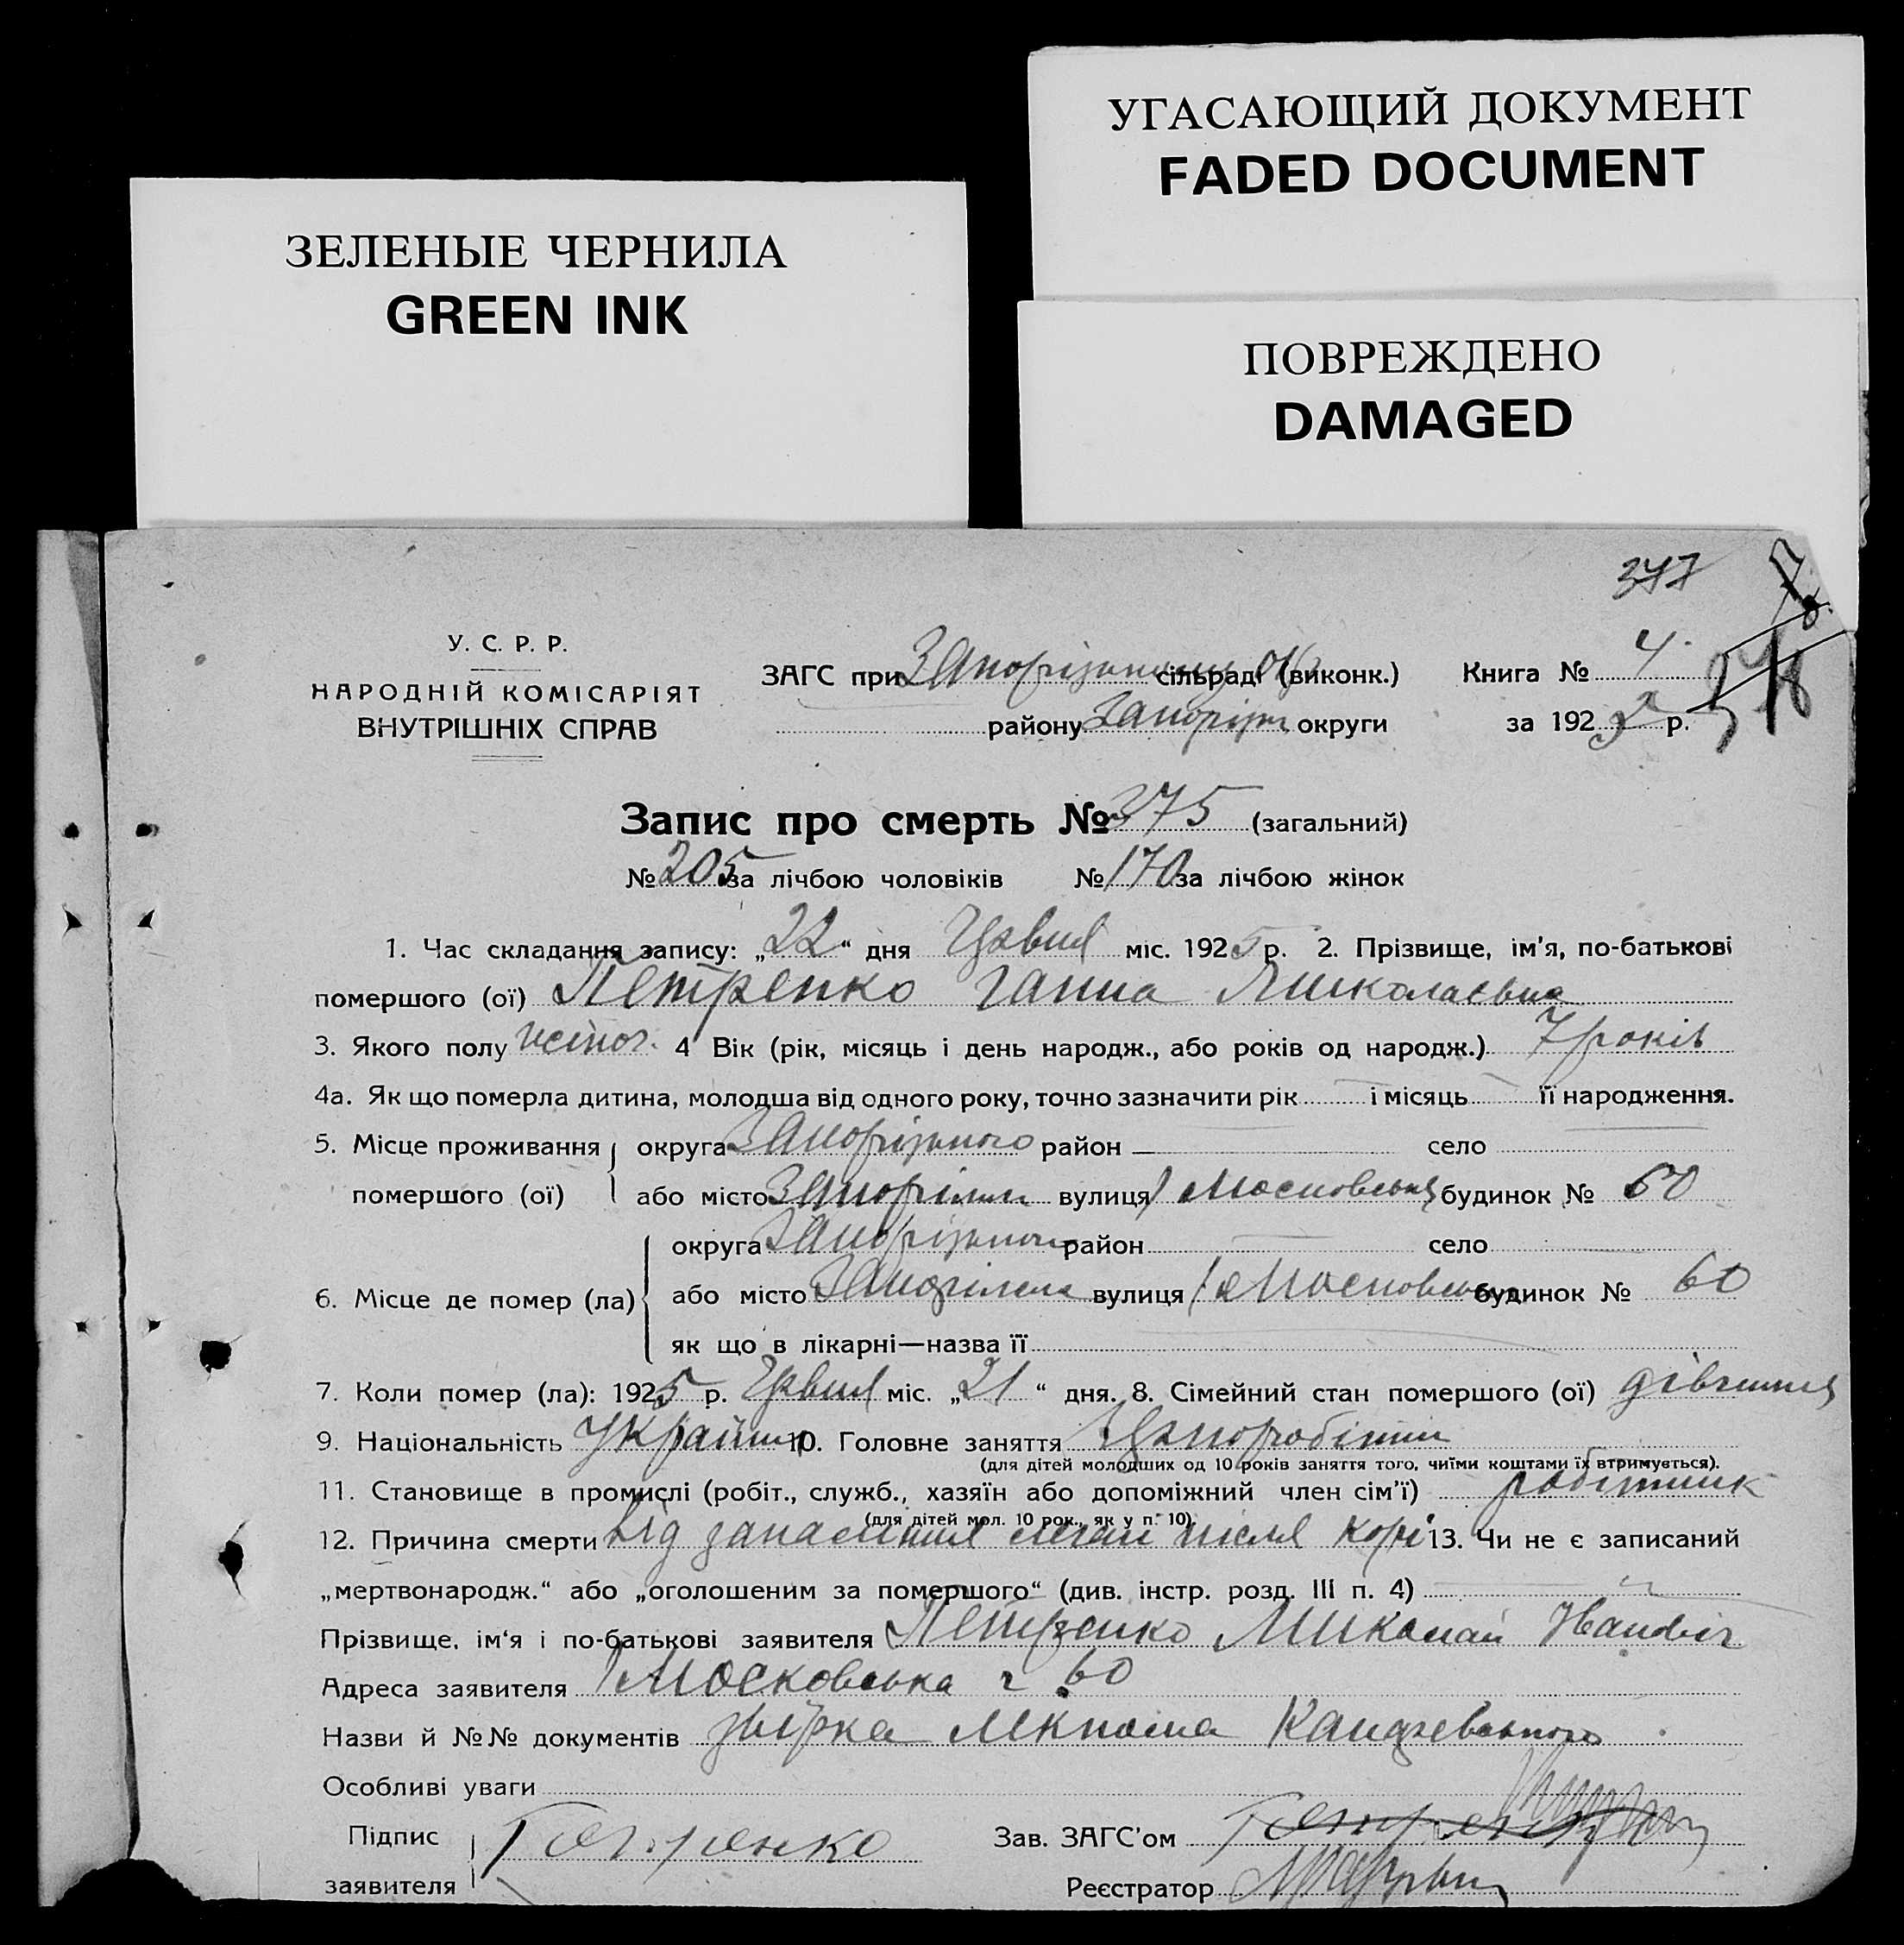 УГАСАЮЩИЙ ДОКУМЕНТ
FADED DOCUMENT
ЗЕЛЕНЫЕ ЧЕРНИЛА
GREEN INK
ПОВРЕЖДЕНО
DAMAGED
347
У. С. Р. Р.
НАРОДНІЙ КОМІСАРІЯТ
ВНУТРІШНІХ СПРАВ
ЗАГС при сільраді (виконк.) Книга № 4
району Запоріз. округи за 192 р.
Запис про смерть № 375 (загальний)
№ 205 за лічбою чоловіків № 170 за лічбою жінок
1. Час складання запису: „22“ дня міс. 1925 р. 2. Прізвище, ім'я, по-батькові
помершого (ої) Петренко Ганна Миколаєвна
3. Якого полу 4 Вік (рік, місяць і день народж., або років од народж.) 7 років
4а. Як що померла дитина, молодша від одного року, точно зазначити рік і місяць її народження.
5. Місце проживання округа Запорізького район село
помершого (ої) або місто Запоріжжя вулиця Московська будинок № 60
округа Запорізького район село
6. Місце де помер (ла) або місто Запоріжжя вулиця Московська будинок № 60
як що в лікарні—назва її
7. Коли помер (ла): 1925 р. міс. „21“ дня. 8. Сімейний стан помершого (ої) дівчина
9. Національність Україн. 10. Головне заняття Чорноробітник
(для дітей молодших од 10 років заняття того, чиїми коштами їх втримується).
11. Становище в промислі (робіт., служб., хазяїн або допоміжний член сім'ї) робітник
(для дітей мол. 10 рок., як у п. 10)
12. Причина смерти Від запалення легені після корі 13. Чи не є записаний
„мертвонародж.“ або „оголошеним за помершого“ (див. інстр. розд. III п. 4)
Прізвище, ім'я і по-батькові заявителя Петренко Миколай Іванович
Адреса заявителя Московська 60
Назви й №№ документів
Особливі уваги
Підпис заявителя Петренко Зав. ЗАГС'ом
Реєстратор